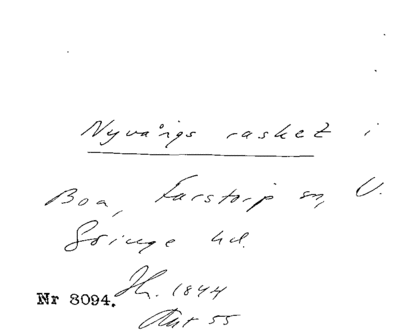 Nyvångs rasket i
Boa, Farstorp sn, V.
Göinge hd.
Nr 8094. Jh. 1844
Art 55